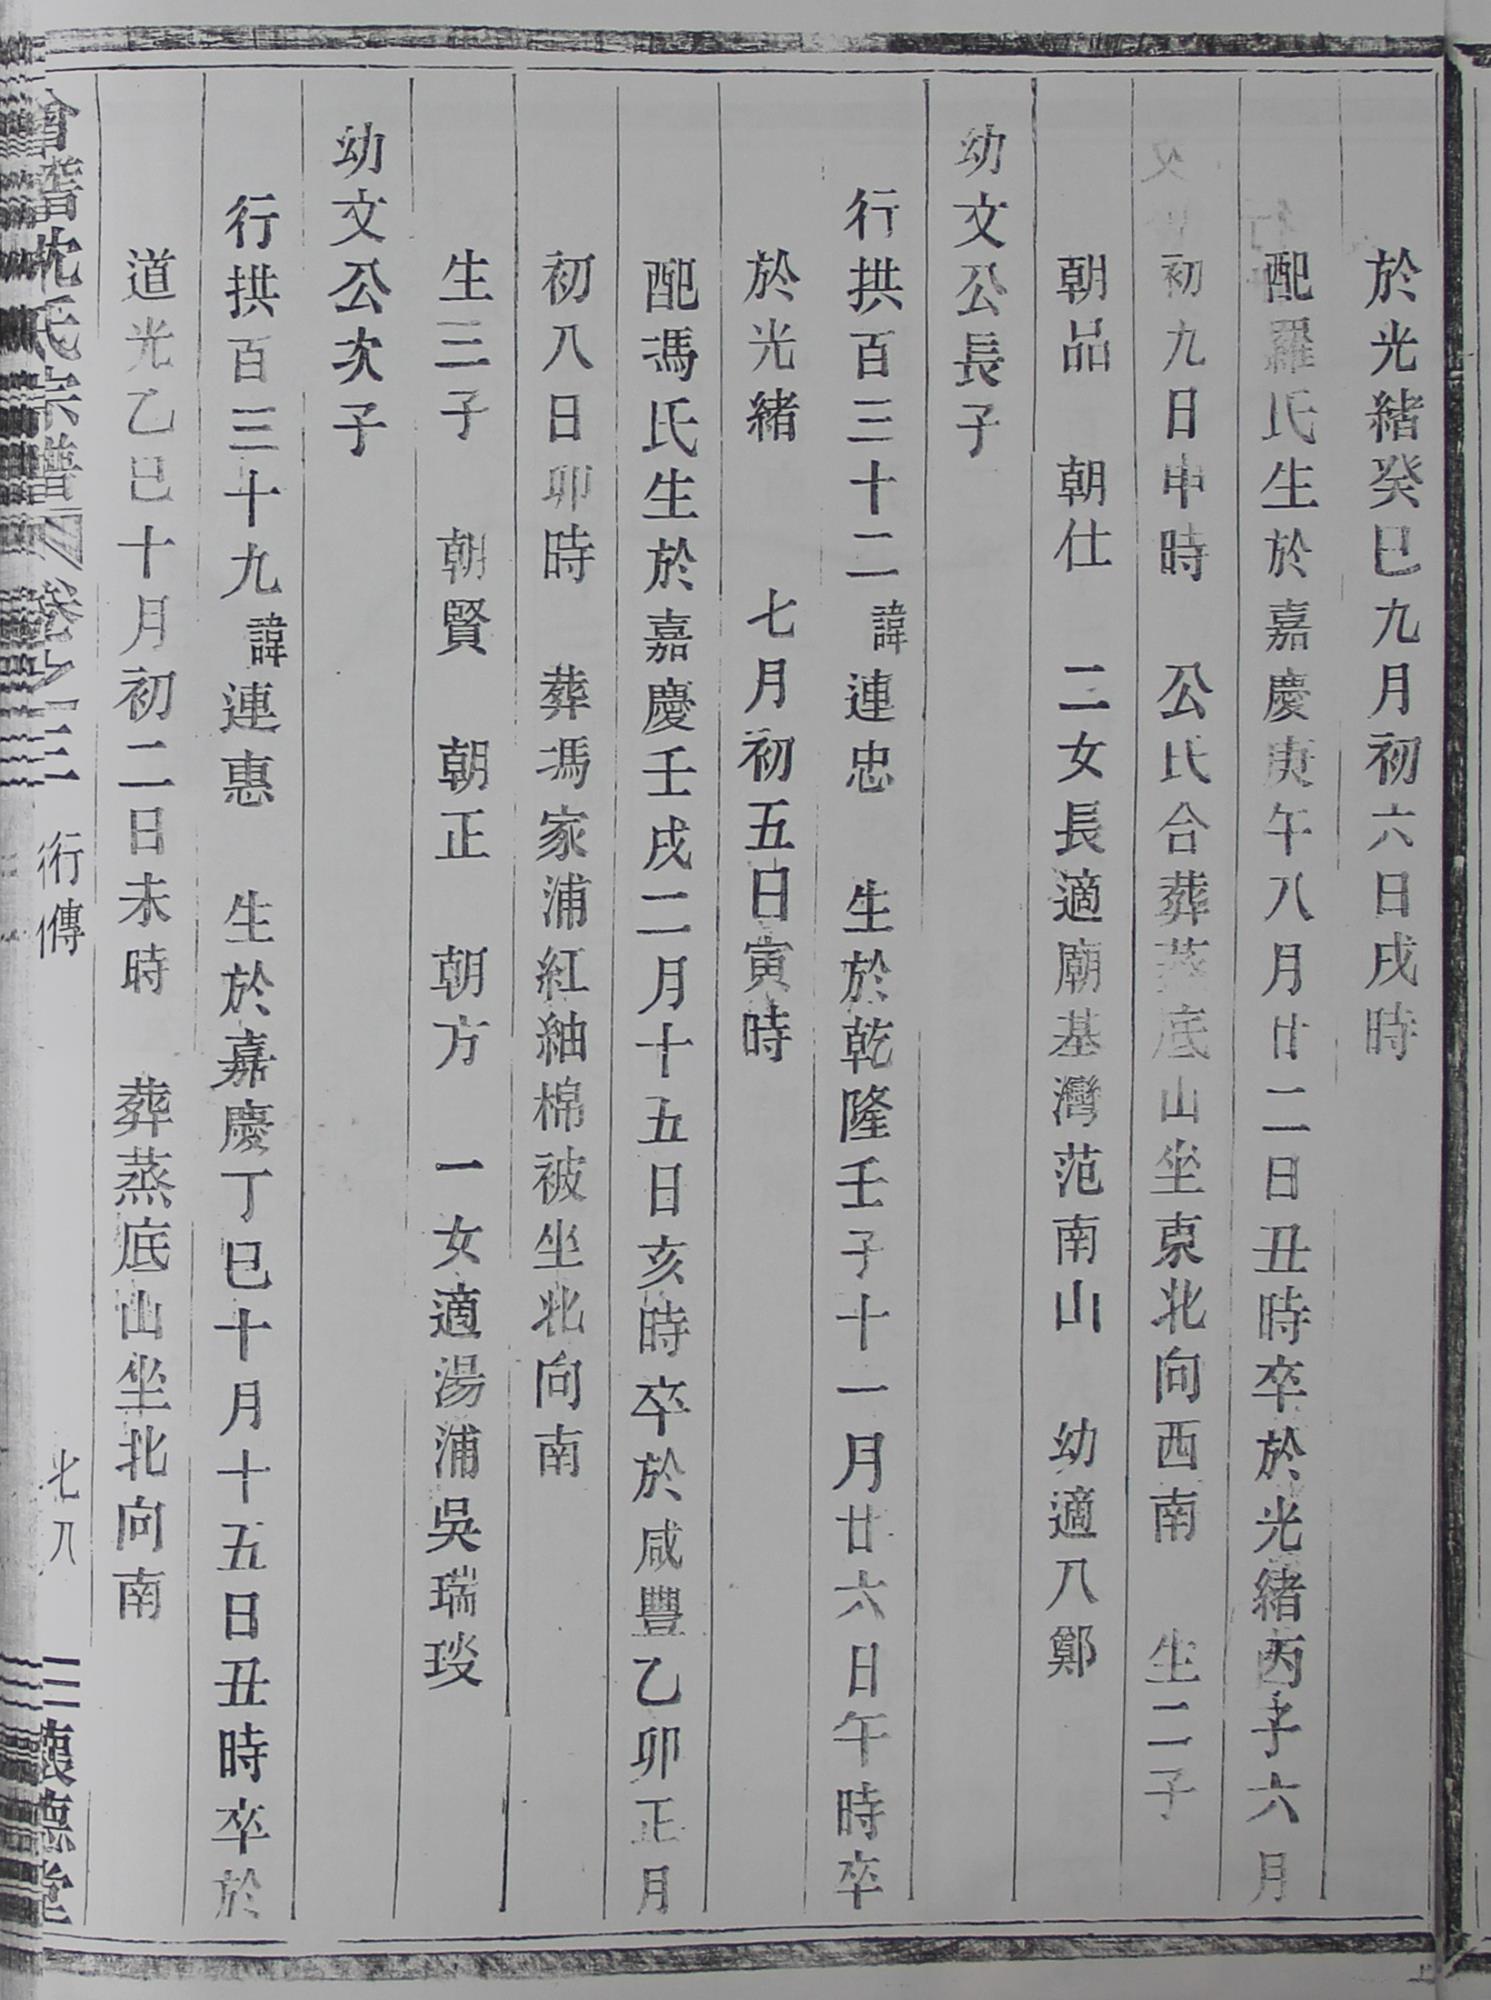 於光緒癸巳九月初六日戌時
配羅氏生於嘉慶庚午八月廿二日丑時卒於光緒丙子六月
初九日申時　公氏合葬蒸底山坐東北向西南　生二子
朝品　朝仕　二女長適廟基灣范南山　幼適八鄭
幼文公長子
行拱百三十二諱連忠　生於乾隆壬子十一月廿六日午時卒
於光緒　七月初五日寅時
配馮氏生於嘉慶壬戌二月十五日亥時卒於咸豐乙卯正月
初八日卯時　葬馮家浦紅紬棉被坐北向南
生三子　朝賢　朝正　朝方　一女適湯浦吳瑞琰
幼文公次子
行拱百三十九諱連惠　生於嘉慶丁巳十月十五日丑時卒於
道光乙巳十月初二日未時　葬蒸底山坐北向南
會稽沈氏宗譜　卷之三　行傳　七八　懷德堂